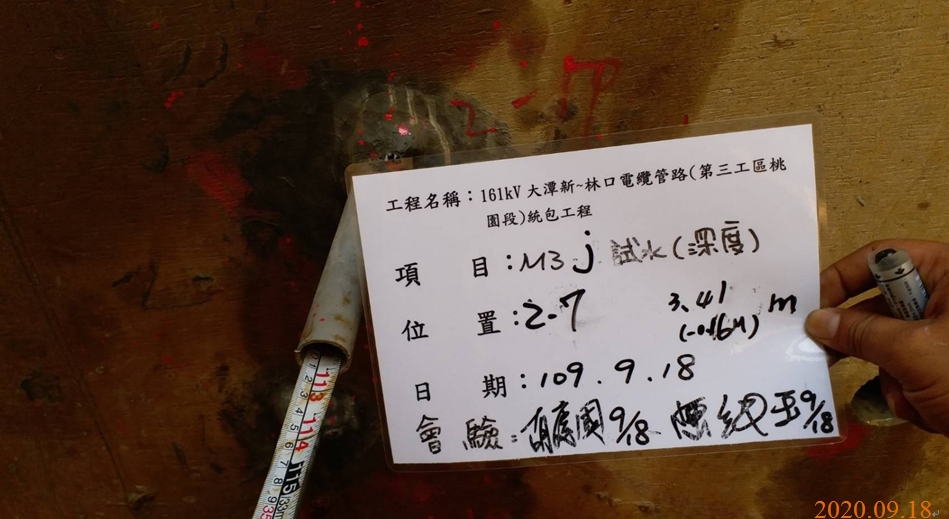 2-17
工程名稱：161kV 大潭新~林口電纜管路(第三工區桃
園段)統包工程
項 目：M3 j 試水(深度)
位 置：2-7 3.41 m
日 期：109.9.18
會 驗： 9/18 9/18
113
114
115
2020.09.18